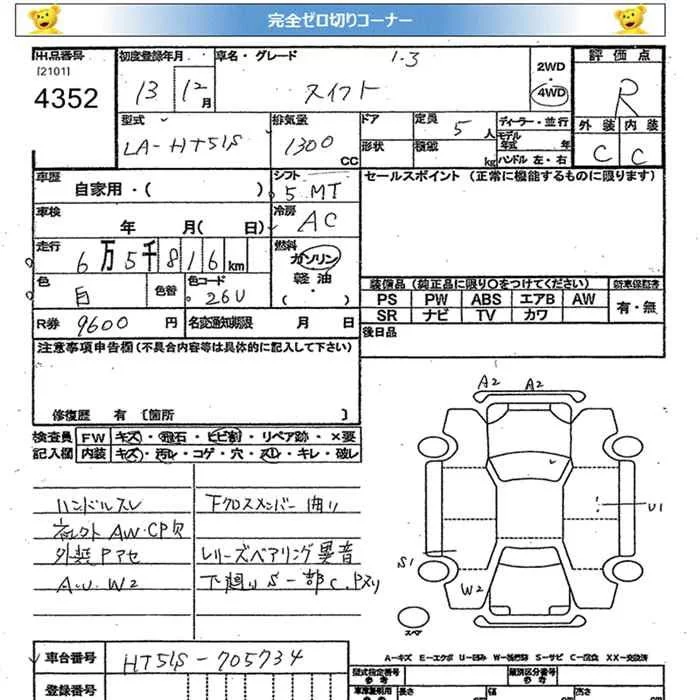 完全ゼロ切りコーナー
出品番号 初度登録年月 車名・グレード 1.3 評価点
[2101] 4352 13 12月 スイフト 2WD・4WD R
外装 内装
C C
型式 排気量 ドア 定員 ディーラー・並行
LA-HT51S 1300 CC 5人 モデル年式 年
形状 積載 kg ハンドル 左・右
車歴 自家用・( ) シフト 5MT セールスポイント(正常に機能するものに限ります)
車検 年 月( 日) 冷房 AC
走行 6万5千816km 燃料 ガソリン・軽油・( )
色 白 色替 色コード 26U
装備品(純正品に限り○をつけてください) 新車保証書
PS PW ABS エアB AW 有・無
SR ナビ TV カワ
R券 9600円 名変通知期限 月 日 後日品
注意事項申告欄(不具合内容等は具体的に記入して下さい)
修復歴 有[箇所 ]
検査員 FW キズ・飛石・ヒビ割・リペア跡・×要
記入欄 内装 キズ・汚レ・コゲ・穴・スレ・キレ・破レ
ハンドルスレ 下クロスメンバー曲り
AW・CP欠
外装Pアセ ベアリング異音
A・U・W2 下廻りS一部C.Pヌリ
A2 A2
U1
S1
W2
スペア
A-キズ E-エクボ U-凹み W-波 S-サビ C-腐食 XX-交換済
車台番号 HT51S-705734 型式指定番号 参考 類別区分番号 参考
登録番号 長さ cm 幅 cm 高さ cm